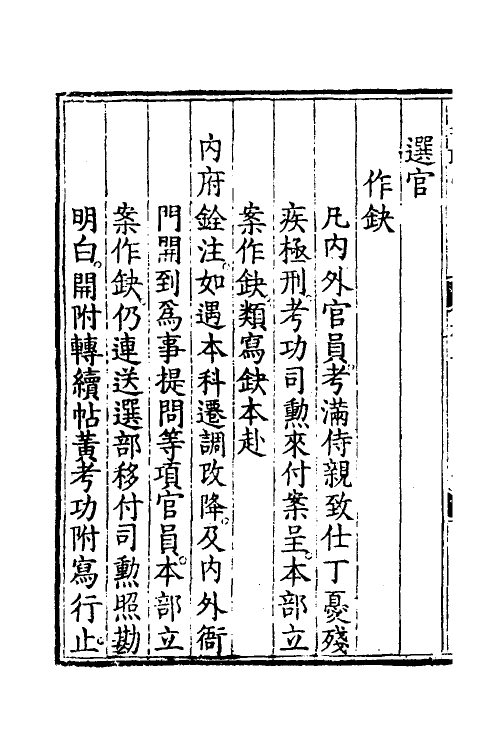 選官
作缺
凡內外官員考滿侍親致仕丁憂殘
疾極刑考功司勲來付案呈本部立
案作缺類寫缺本赴
內府銓注如遇本科遷調改降及內外衙
門開到爲事提問等項官員本部立
案作缺仍連送選部移付司勲照勘
明白開附轉續帖黃考功附寫行止